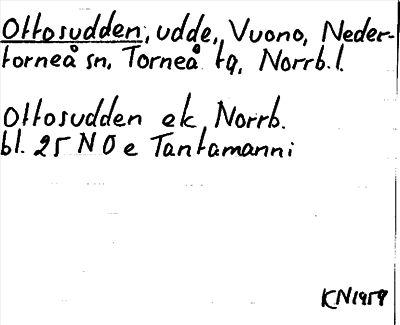 Ottosudden, udde, Vuono, Neder-
torneå sn, Torneå tg, Norrb.l.
Ottosudden ek Norrb.
bl. 25 NO e Tantamanni
KN1959